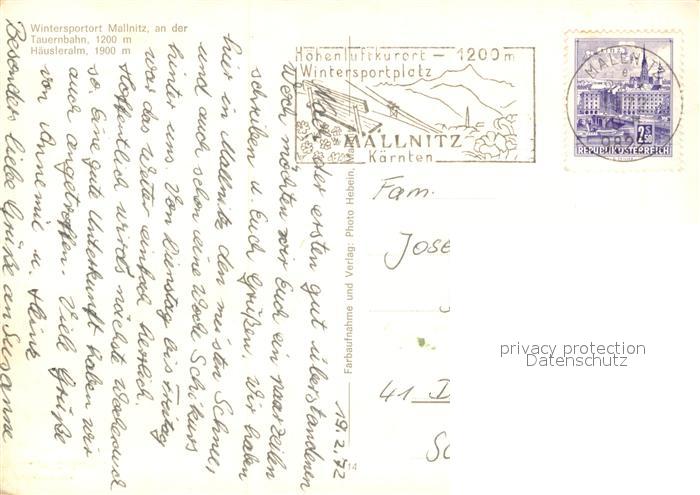 Wintersportort Mallnitz, an der
Tauernbahn, 1200 m
Häusleralm, 1900 m
Höhenluftkurort – 1200 m
Wintersportplatz
MALLNITZ
Kärnten
MALLNITZ
2 S 50
REPUBLIK ÖSTERREICH
19.2.72
Nach der ersten gut überstandenen
Woch möchten wir Euch ein paar Zeilen
schreiben u. Euch Grüßen. Wir haben
hier in Mallnitz den meisten Schnee,
und auch schon eine Woch Schikurs
hinter uns. Von Dienstag bis Freitag
war das Wetter einfach herrlich.
Hoffentlich wirds nächste Woche auch
so. Eine gute Unterkunft haben wir
auch angetroffen. Viele Grüße
von Annemie u. Heinz
Besonders liebe Grüße an Susanne
Farbaufnahme und Verlag: Photo Hebein,
14
Fam.
Jose
41 D
privacy protection
Datenschutz